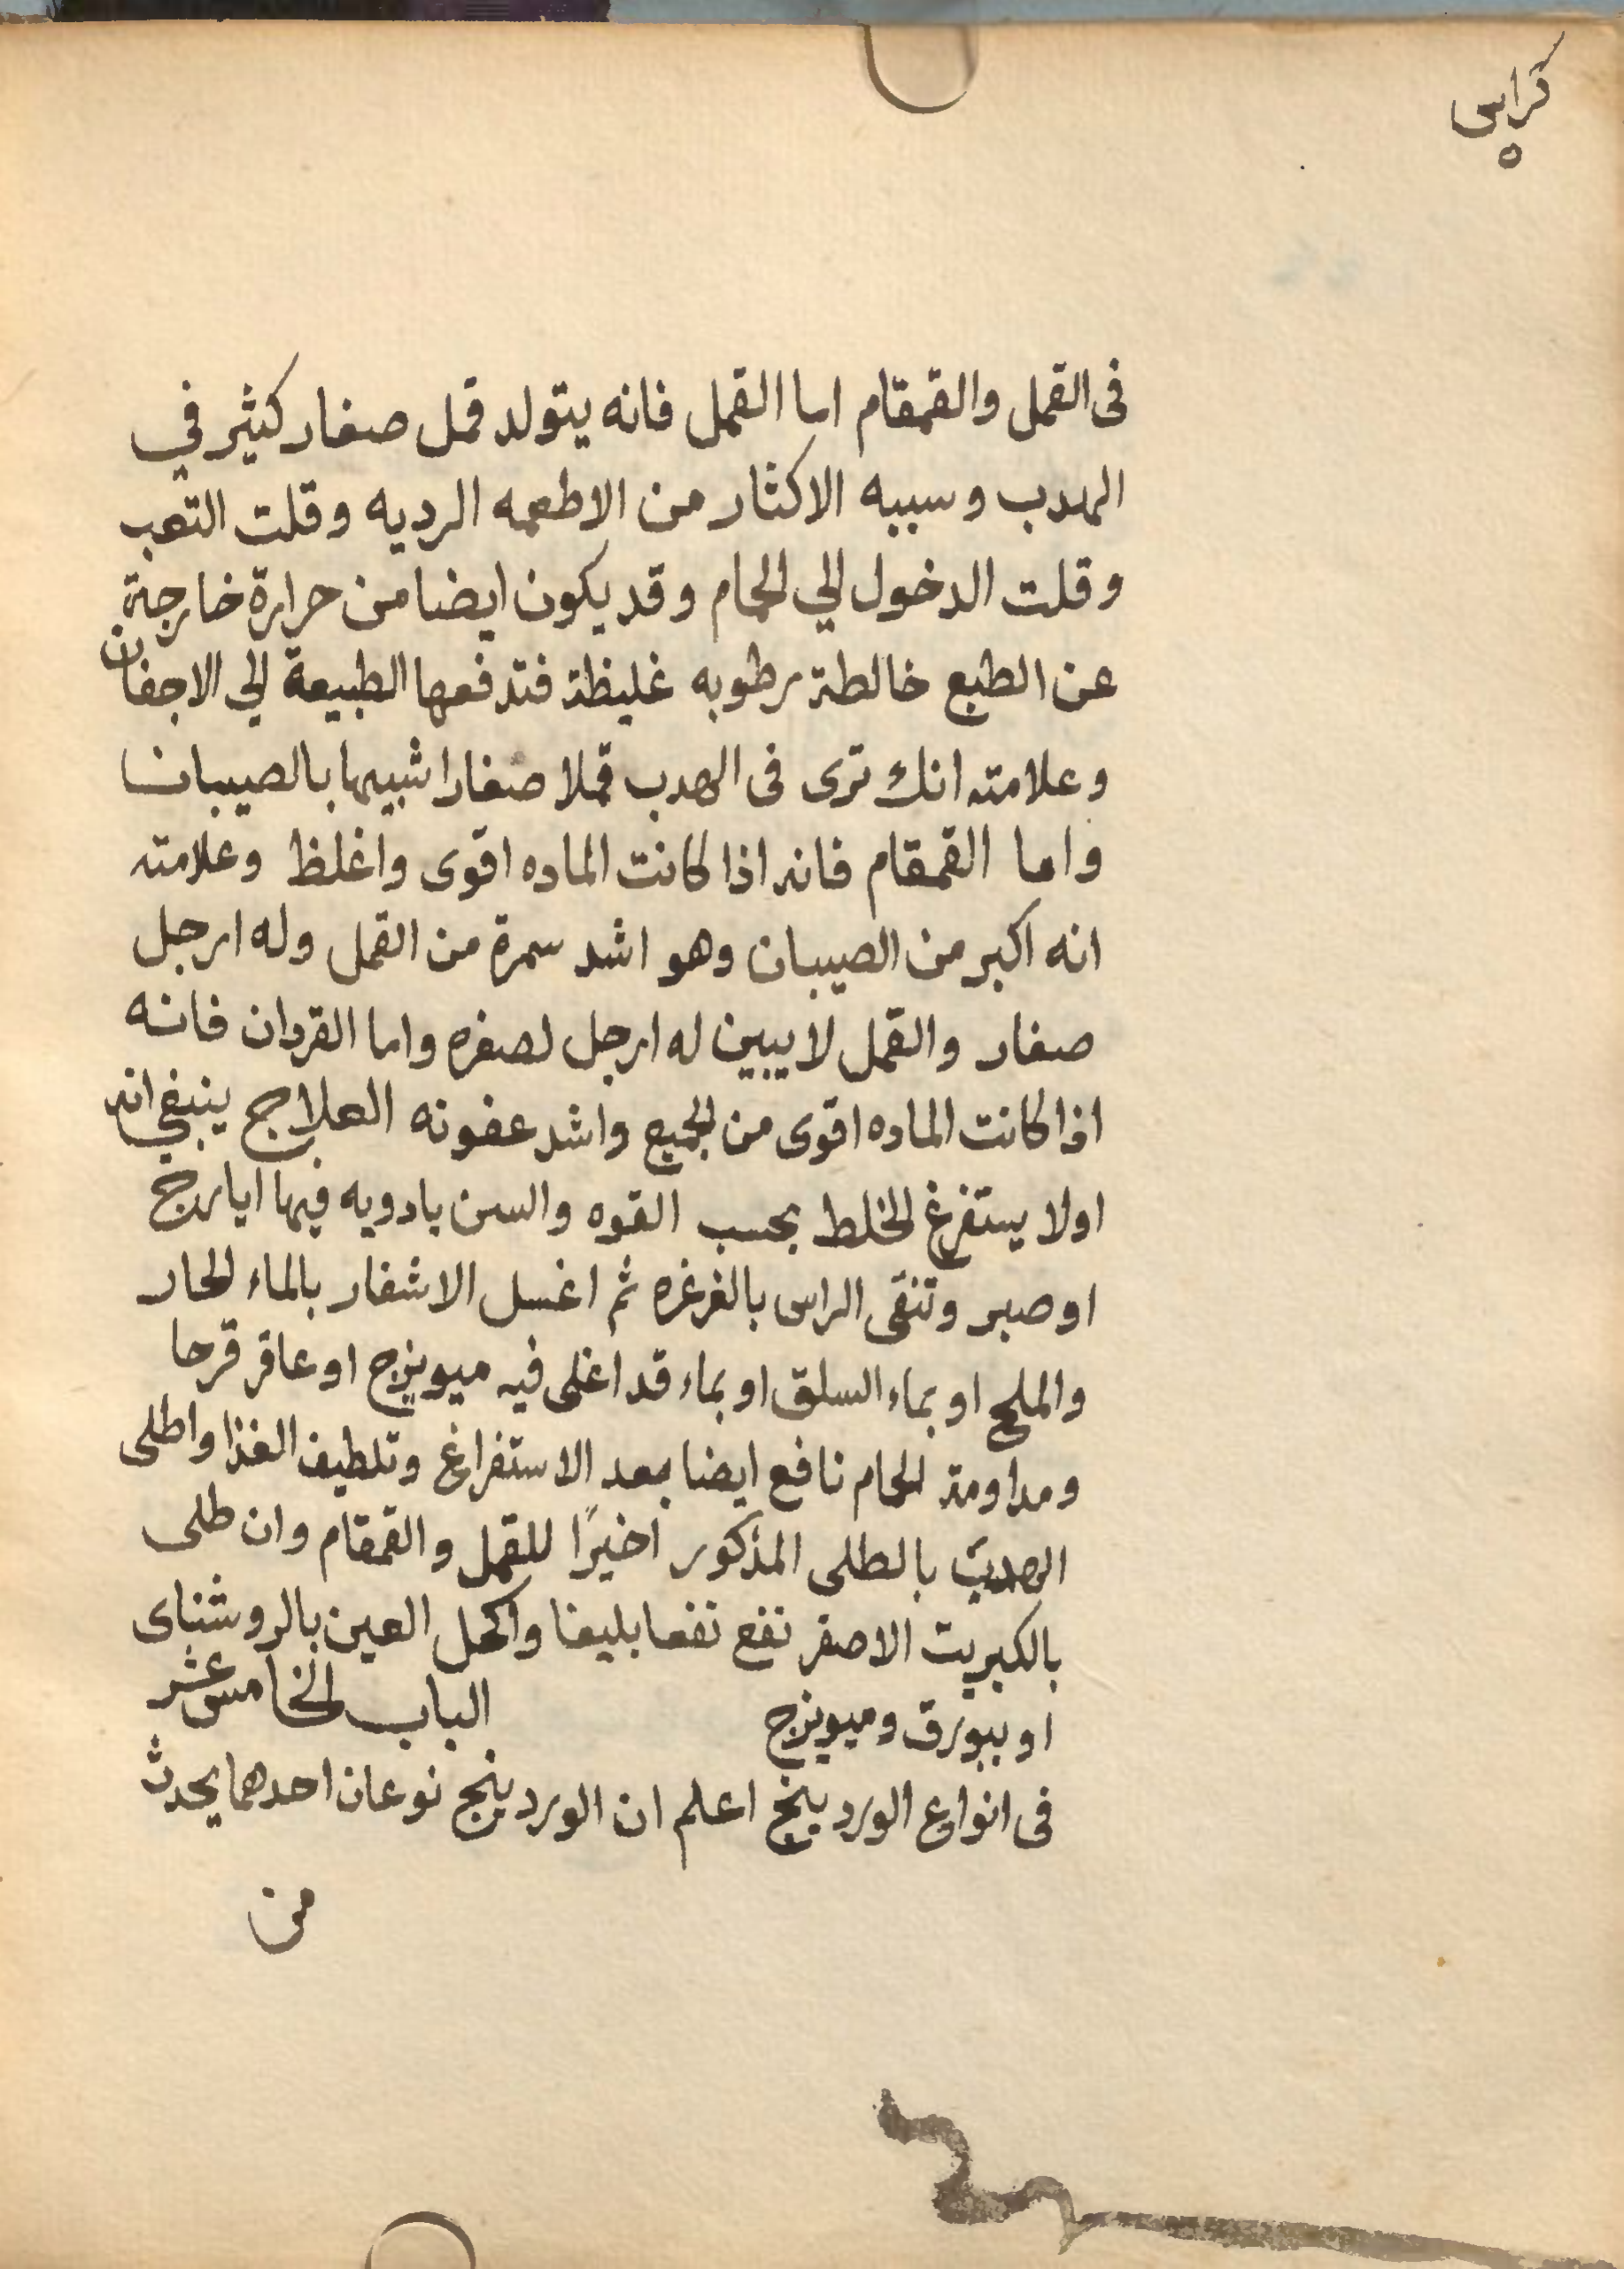 كراس
٥
فى القمل والقمقام اما القمل فانه يتولد قمل صغار كثير في
الهدب وسببه الاكثار من الاطعمه الرديه وقلت التعب
وقلت الدخول الي الحمام وقد يكون ايضا من حرارة خارجة
عن الطبع خالطة رطوبه غليظة فتدفعها الطبيعة الي الاجفان
وعلامته انك ترى فى الهدب قملا صغارا شبيها بالصيبان
واما القمقام فانه اذا كانت الماده اقوى واغلظ وعلامته
انه اكبر من الصيبان وهو اشد سمرة من القمل وله ارجل
صغار والقمل لا يبين له ارجل لصغره واما القردان فانه
اذا كانت الماده اقوى من الجميع واشد عفونه العلاج ينبغي انه
اولا يستفرغ الخلط بحسب القوه والسن بادويه فيها ايارج
او صبر وتنقى الراس بالغرغره ثم اغسل الاشفار بالماء الحار
والملح او بماء السلق او بماء قد اغلى فيه ميويزج او عاقر قرحا
ومداومة الحمام نافع ايضا بعد الاستفراغ وتلطيف الغذا واطلى
الهدب بالطلى المذكور اخيرًا للقمل والقمقام وان طلى
بالكبريت الاصفر نفع نفعا بليغا واكحل العين بالروشناى
او ببورق وميويزج الباب الخامس عشر
فى انواع الوردينج اعلم ان الوردينج نوعان احدهما يحدث
من